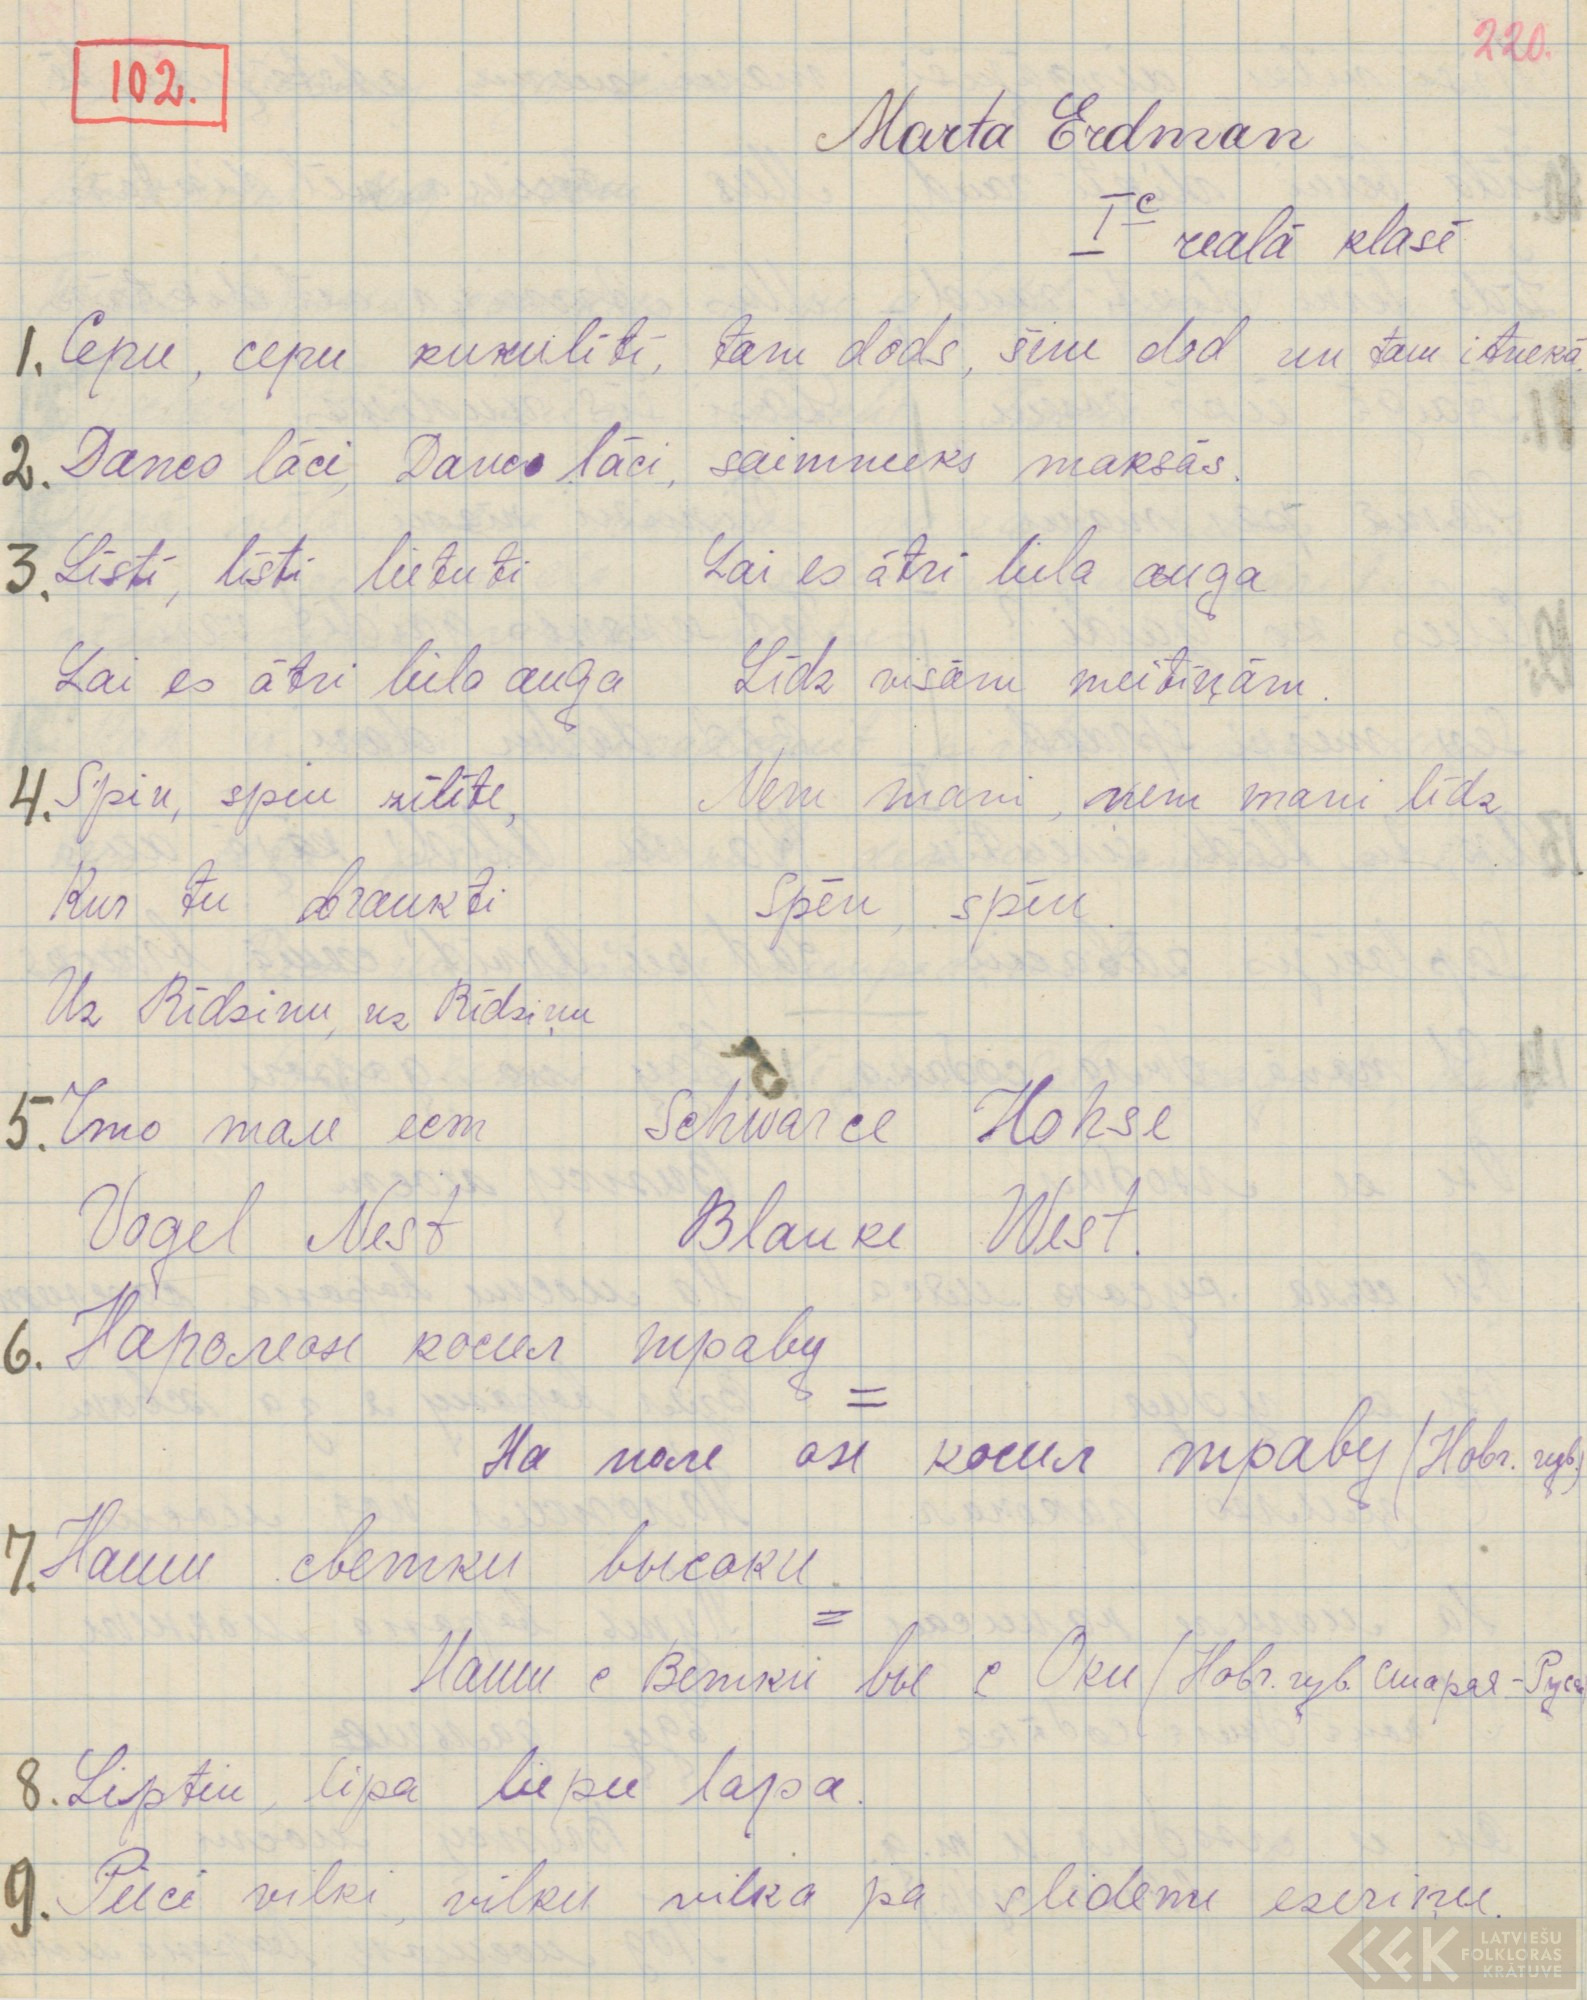 102.
220.
Marta Erdman
I c realā klasē
1. Cepu, cepu kukulīti, tam dods, šim dod un tam itnekā.
2. Danco lāci, Danco lāci, saimneeks maksās.
3. Līsti, līsti lietuti Lai es ātri liela auga
Lai es ātri liela auga Līdz visām meitiņām.
4. Spīu, spīu zīlīte, Nem mani, nem mani līdz
Kur tu braukti Spēu, spēu.
Uz Rīdzinu, uz Rīdziņu
5. Что тале ест Schwarce Hohse
Vogel Nest Blanke West.
6. Наполеон косил траву
=
На поле он косил траву (Новг. губ.)
7. Наши светки высоки.
=
Наши с Ветки вы с Оки (Новг. губ. Старая-Русса
8. Liptiu, lipa liepu lapa.
9. Pieci vilki, vilku vilka pa slidenu ezeriņu.
LATVIEŠU
FOLKLORAS
KRĀTUVE